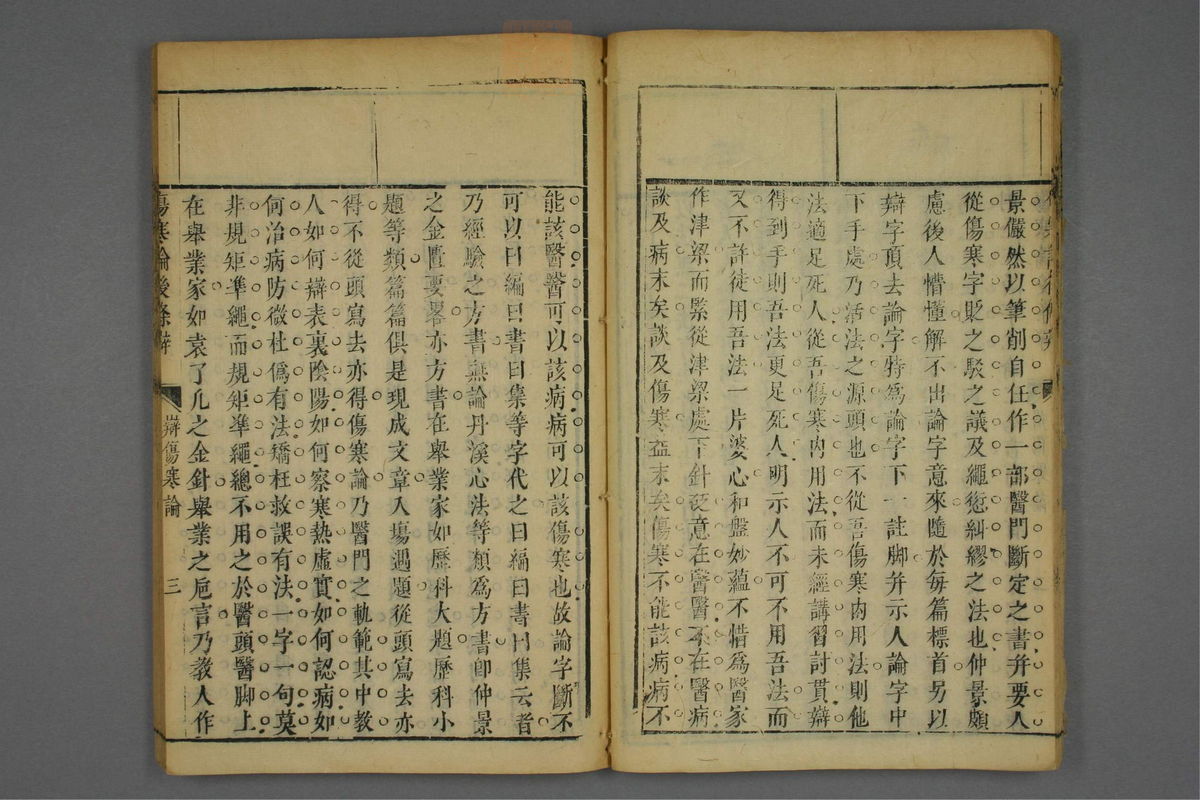 景儼然以筆削自任作一部醫門斷定之書幷要人
從傷寒字貶之駁之議及繩愆糾繆之法也仲景頗
慮後人懵懂解不出論字意來隨於每篇標首另以
辯字頂去論字特爲論字下一註脚幷示人論字中
下手處乃活法之源頭也不從吾傷寒内用法則他
法適足死人從吾傷寒内用法而未經講習討貫辯
得到手則吾法更足死人明示人不可不用吾法而
又不許徒用吾法一片婆心和盤妙蘊不惜爲醫家
作津梁而緊從津梁處下針砭意在醫醫不在醫病
談及病末矣談及傷寒益末矣傷寒不能該病病不
能該醫醫可以該病病可以該傷寒也故論字斷不
可以曰編曰書曰集等字代之曰編曰書曰集云者
乃經驗之方書無論丹溪心法等類爲方書卽仲景
之金匱要畧亦方書在舉業家如歷科大題歷科小
題等類篇篇俱是現成文章入塲遇題從頭寫去亦
得不從頭寫去亦得傷寒論乃醫門之軌範其中教
人如何辯表裏陰陽如何察寒熱虛實如何認病如
何治病防微杜僞有法矯枉救誤有法一字一句莫
非規矩凖繩而規矩凖繩總不用之於醫頭醫脚上
在舉業家如袁了凡之金針舉業之巵言乃教人作
傷寒論後條辯 辯傷寒論 三